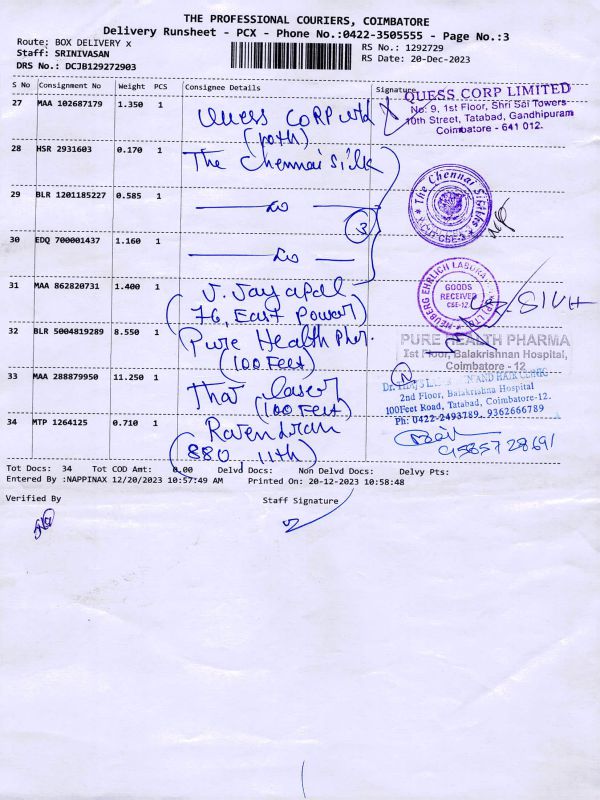 THE PROFESSIONAL COURIERS, COIMBATORE
Delivery Runsheet - PCX - Phone No.:0422-3505555 - Page No.:3
Route: BOX DELIVERY x
RS No.: 1292729
Staff: SRINIVASAN
RS Date: 20-Dec-2023
DRS No.: DCJB129272903
S No Consignment No Weight PCS Consignee Details Signature
27 MAA 102687179 1.350 1 Quess CORP Ltd
(path)
QUESS CORP LIMITED
No: 9, 1st Floor, Shri Sai Towers
10th Street, Tatabad, Gandhipuram
Coimbatore - 641 012.
28 HSR 2931603 0.170 1 The Chennai Silk
The Chennai Silks
29 BLR 1201185227 0.585 1
3
30 EDQ 700001437 1.160 1
31 MAA 862820731 1.400 1 V. Jayapal
(76, East Power)
NEUBERG EHRLICH LABORATORY
GOODS
RECEIVED
CBE-12
32 BLR 5004819289 8.550 1 Pure Health Phar.
(100 Feet)
PURE HEALTH PHARMA
1st Floor, Balakrishnan Hospital,
Coimbatore - 12
33 MAA 288879950 11.250 1 Thar laser
(100 Feet)
AND HAIR CLINIC
2nd Floor, Balakrishna Hospital
100Feet Road, Tatabad, Coimbatore-12.
Ph: 0422-2493789, 9362666789
34 MTP 1264125 0.710 1 Ravendran
(880, 11th)
9585728691
Tot Docs: 34 Tot COD Amt: 0.00 Delvd Docs: Non Delvd Docs: Delvy Pts:
Entered By :NAPPINAX 12/20/2023 10:57:49 AM Printed On: 20-12-2023 10:58:48
Verified By Staff Signature